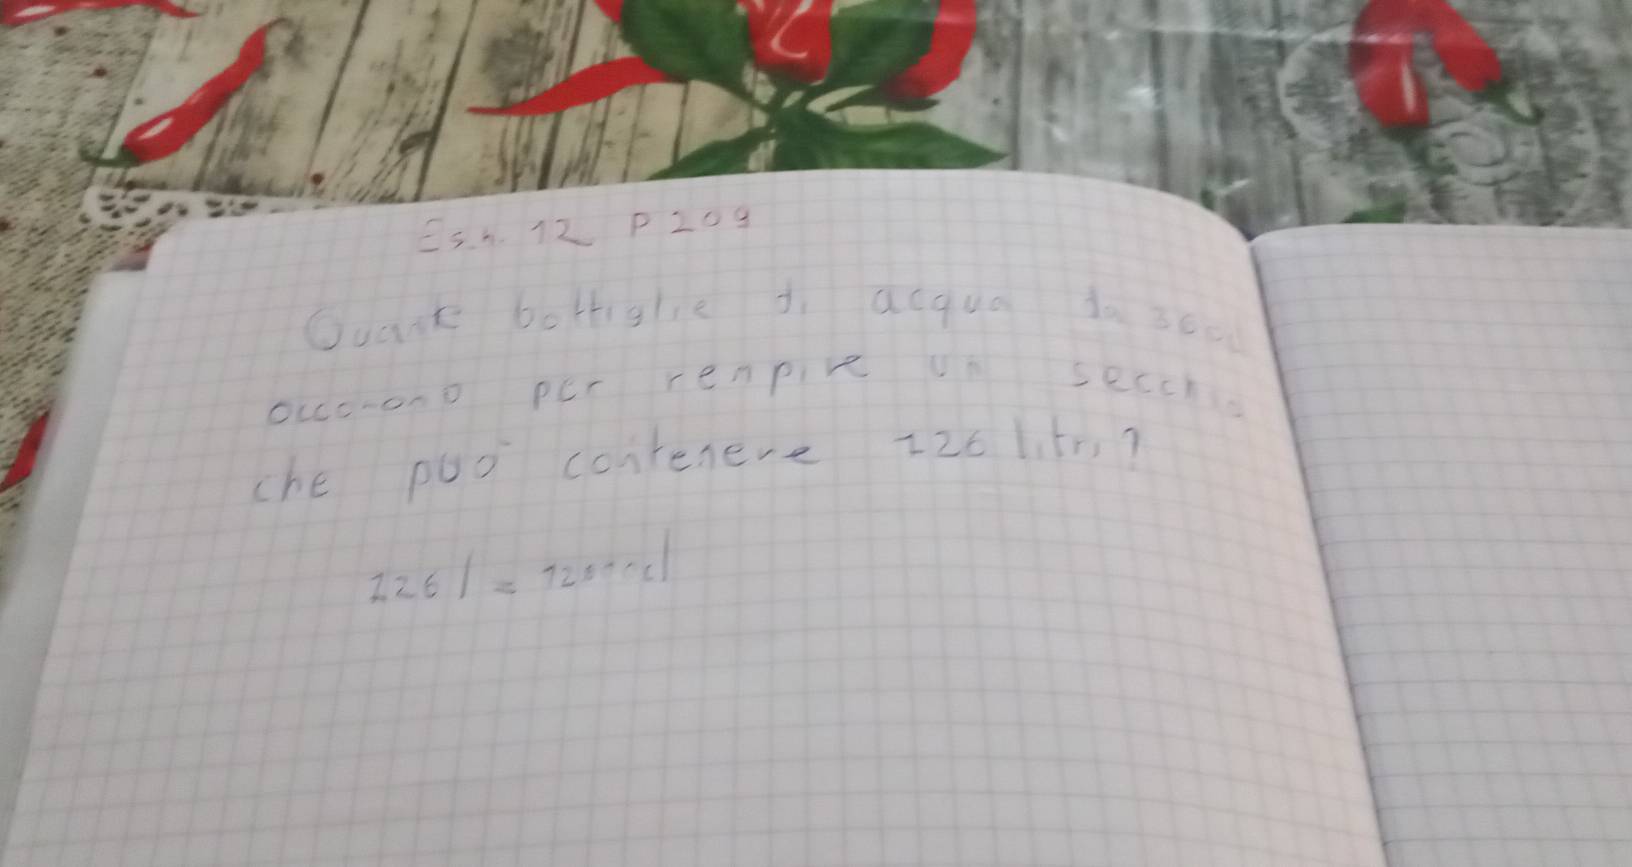 Es.n. 12 P 209
Quante bottiglie di acqua da
occorrono per rempire un secchio
che può contenere 126 litri?
126 l =